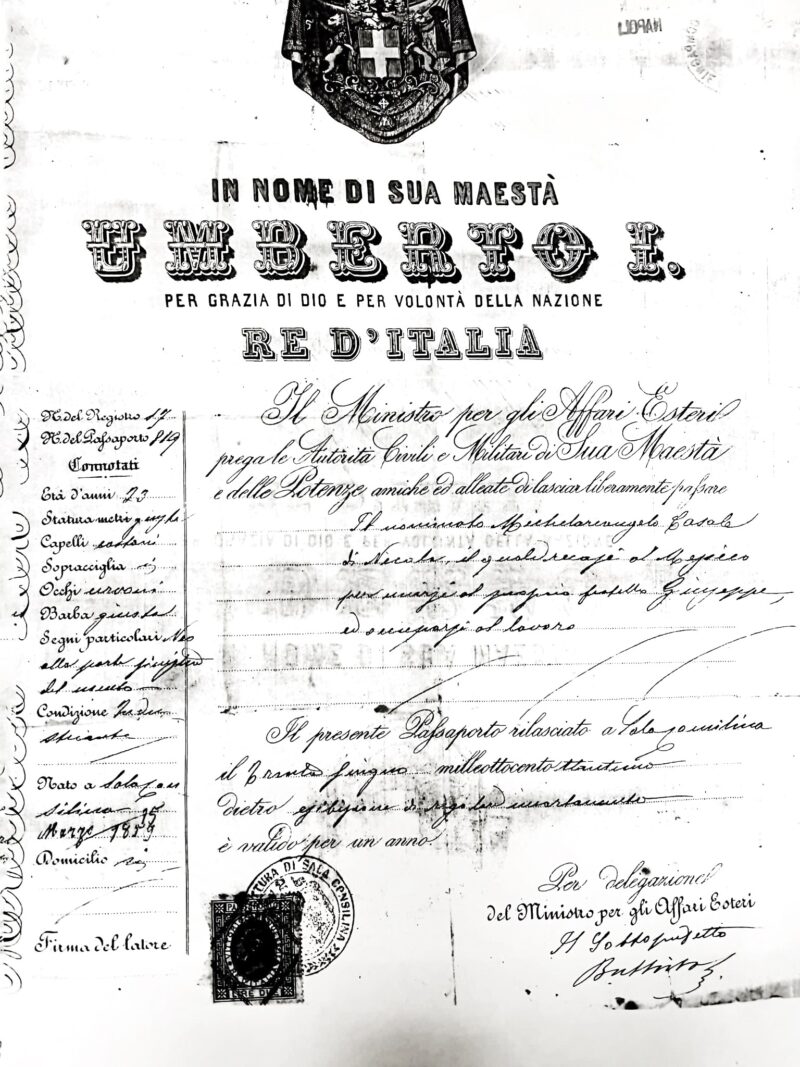 NAPOLI
IN NOME DI SUA MAESTÀ
UMBERTO I.
PER GRAZIA DI DIO E PER VOLONTÀ DELLA NAZIONE
RE D'ITALIA
N. del Registro 17
N. del Passaporto 819
Connotati
Età d'anni 23
Statura metri giusta
Capelli castani
Sopracciglia
Occhi
Barba giusta
Segni particolari Neo
alla parte sinistra
del mento
Condizione Indu
striante
Nato a Sala Con
silina
Marzo 1859
Domicilio
Firma del latore
Il Ministro per gli Affari Esteri
prega le Autorità Civili e Militari di Sua Maestà
e delle Potenze amiche ed alleate di lasciar liberamente passare
Il nominato Michelarcangelo Casale
di Nicola, il quale recasi al Messico
per unirsi al proprio fratello Giuseppe,
ed occuparsi al lavoro
Il presente Passaporto rilasciato a Sala Consilina
il Trenta Giugno milleottocento
dietro esibizione di regolar incartamento
è valido per un anno.
Per delegazione
del Ministro per gli Affari Esteri
Il Sottoprefetto
SOTTOPREFETTURA DI SALA CONSILINA
LIRE DUE